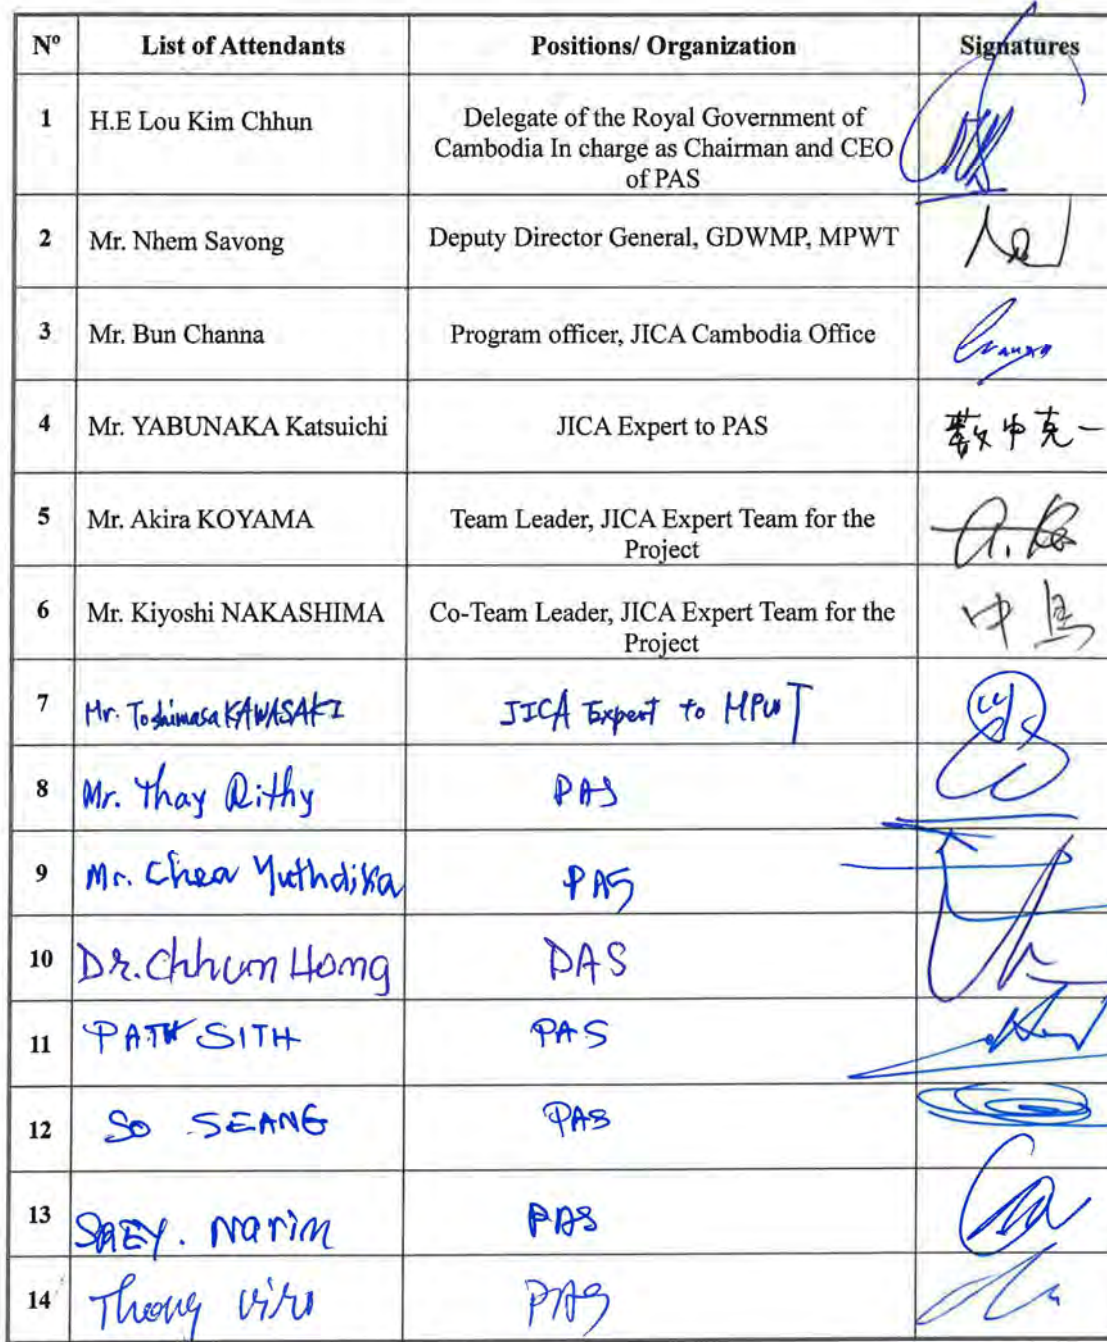 Nº List of Attendants Positions/ Organization Signatures
1 H.E Lou Kim Chhun Delegate of the Royal Government of
Cambodia In charge as Chairman and CEO
of PAS
2 Mr. Nhem Savong Deputy Director General, GDWMP, MPWT
3 Mr. Bun Channa Program officer, JICA Cambodia Office
4 Mr. YABUNAKA Katsuichi JICA Expert to PAS 薮中克一
5 Mr. Akira KOYAMA Team Leader, JICA Expert Team for the
Project
6 Mr. Kiyoshi NAKASHIMA Co-Team Leader, JICA Expert Team for the
Project 中島
7 Mr. Toshimasa KAWASAKI JICA Expert to MPWT
8 Mr. Thay Rithy PAS
9 Mr. Chea Yuthdika PAS
10 Dr. Chhun Hong PAS
11 PATH SITH PAS
12 So SEANG PAS
13 SREY. Narin PAS
14 Thong PAS